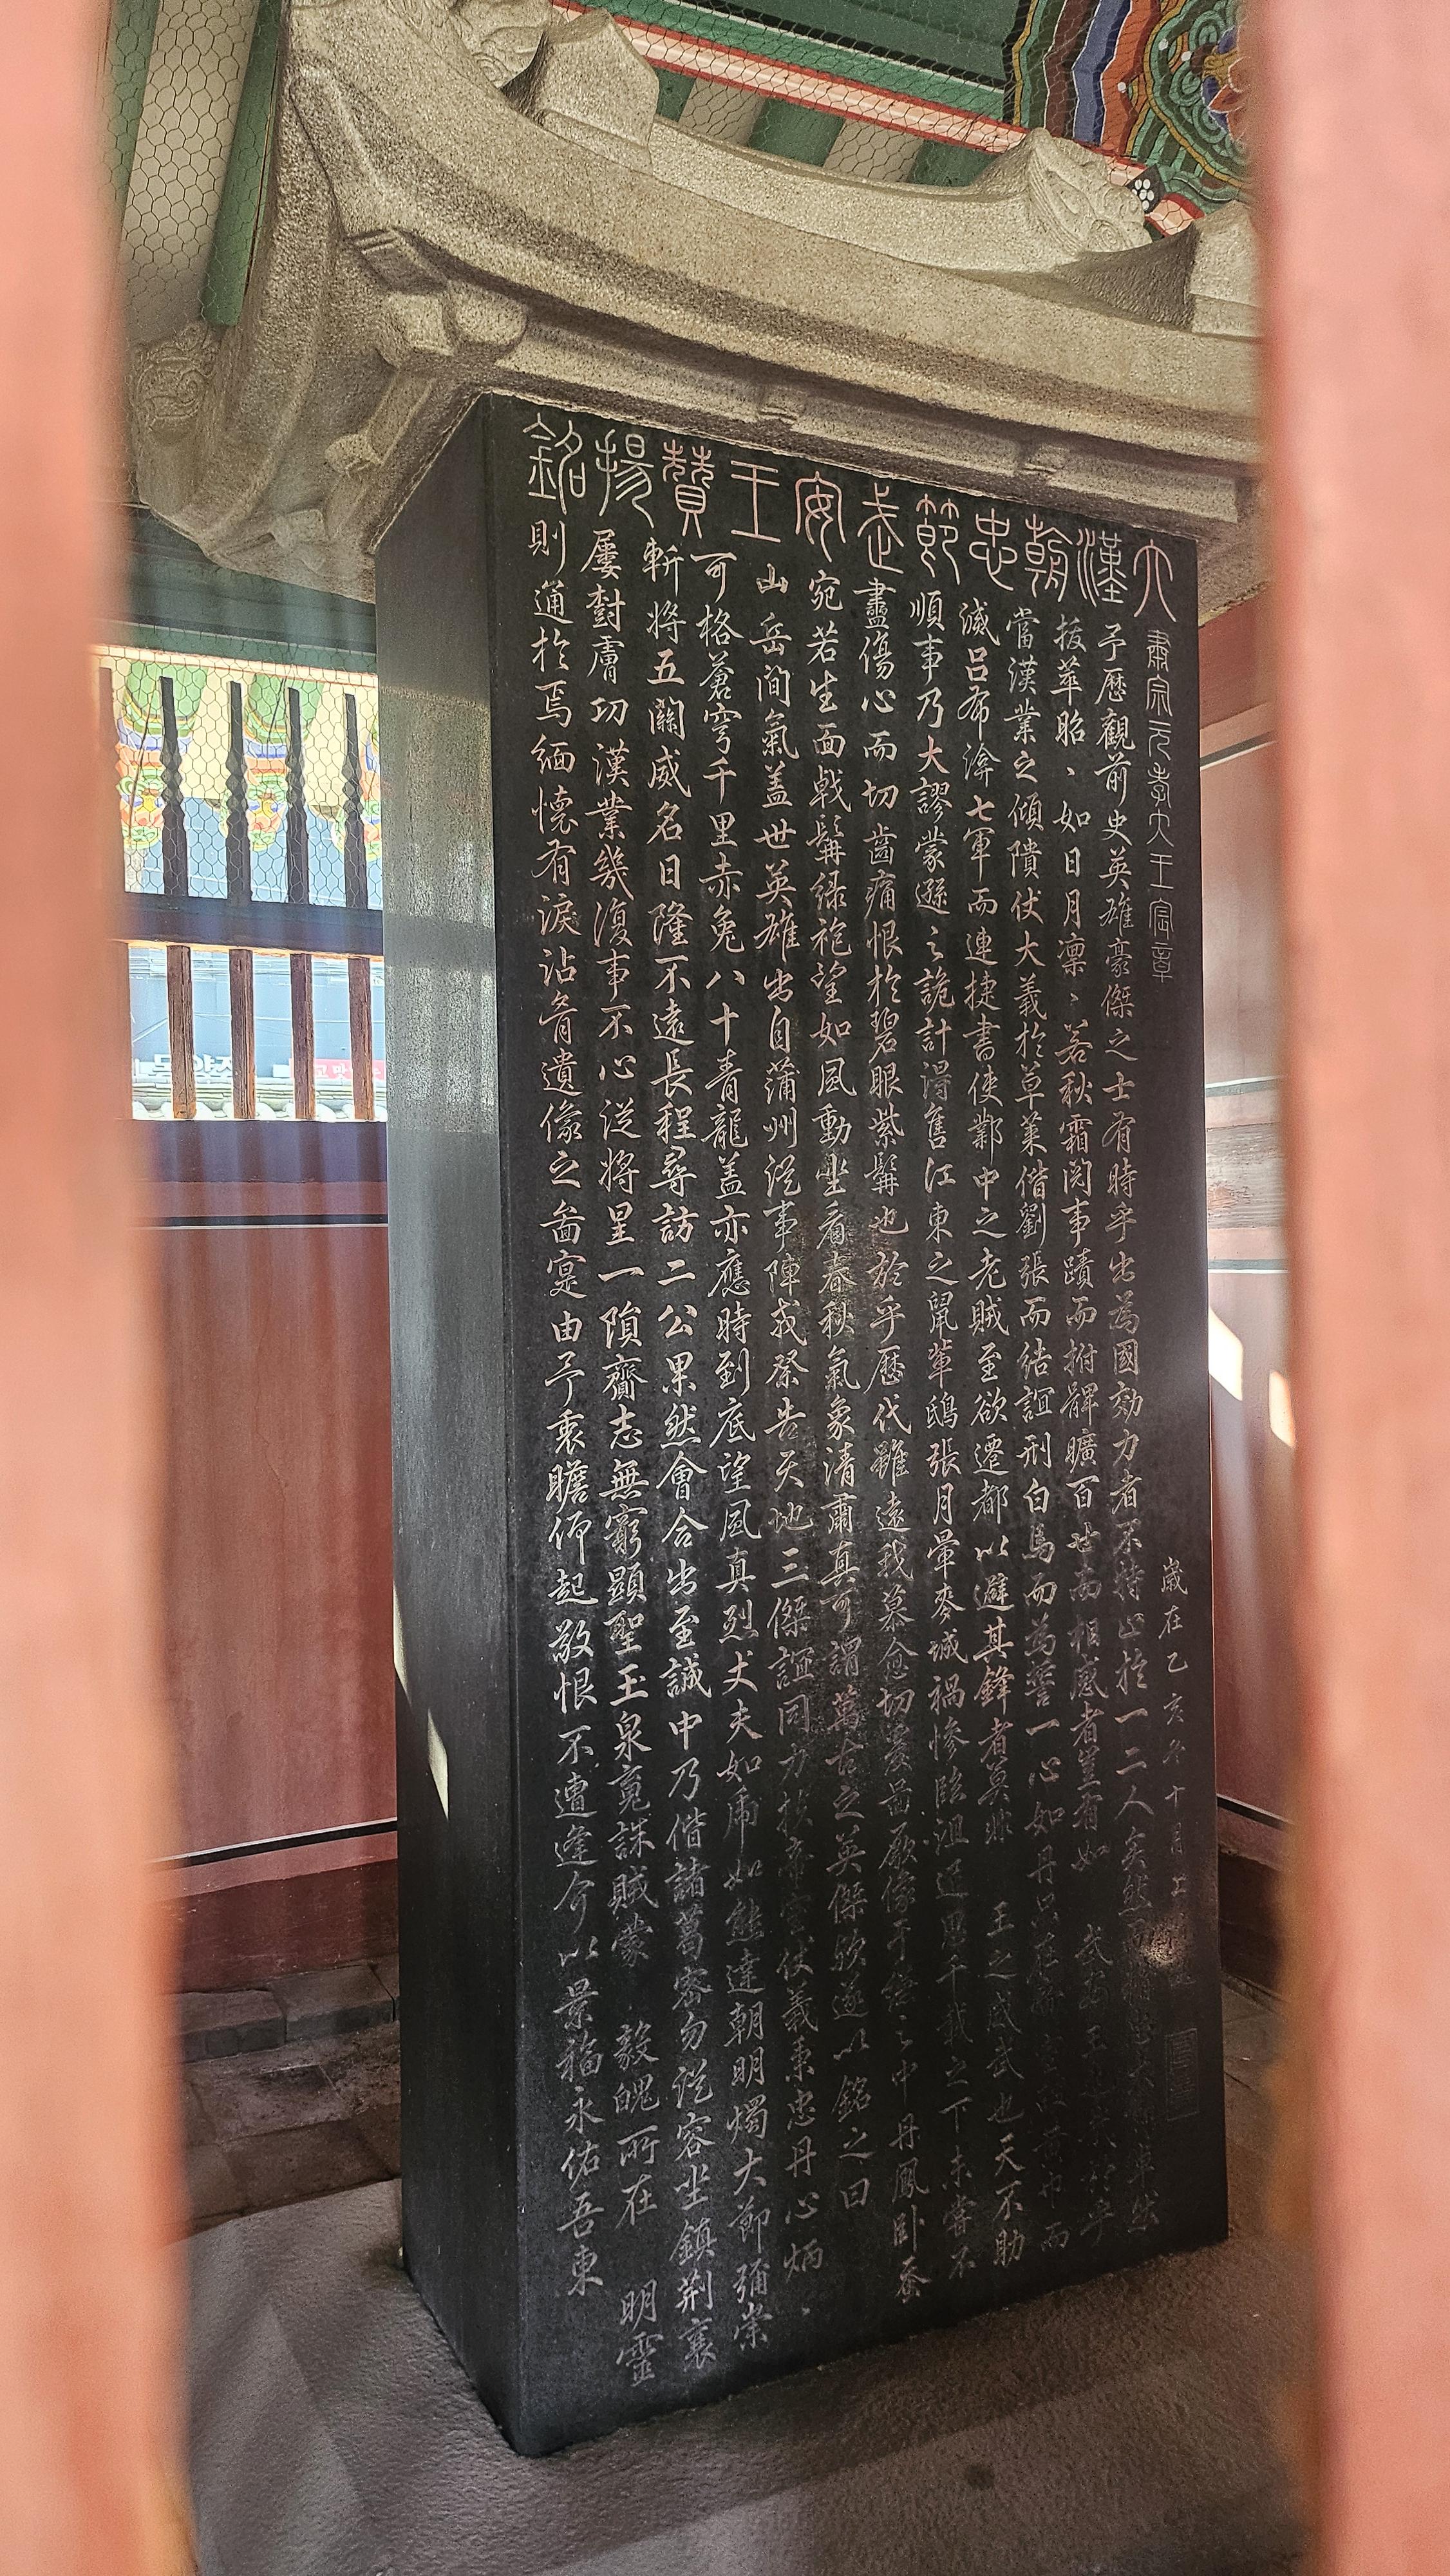 大漢朝忠節武安王贊揚銘
肅宗元孝大王宸章 歲在乙亥冬十月上
予歷觀前史英雄豪傑之士有時乎出爲國効力者不特止於一二人矣然而精忠大節卓然
拔萃昭〻如日月凜〻若秋霜閱事蹟而拊髀曠百世而相感者豈有如 武安王 於乎
當漢業之傾隤仗大義於草萊偕劉張而結誼刑白馬而爲誓一心如丹只在 而
滅呂布渰七軍而連捷書使鄴中之老賊至欲遷都以避其鋒者莫非 王之威武也天不助
順事乃大謬蒙遜之詭計得售江東之鼠輩鴟張月暈麥城禍慘臨沮逞 千載之下未嘗不
盡傷心而切齒痛恨於碧眼紫髥也於乎歷代雖遠我慕愈切爰畵厥像于繪之中丹鳳卧蚕
宛若生面戟髥綠袍望如風動坐看春秋氣象清肅真可謂萬古之英傑歟遂以銘之曰
山岳間氣蓋世英雄出自蒲州從事陣戎祭告天地三傑誼同力扶帝室仗義秉忠丹心炳〻
可格蒼穹千里赤兔八十青龍蓋亦應時到底望風真烈丈夫如虎如熊達朝明燭大節彌崇
斬將五關威名日隆不遠長程尋訪二公果然會合出至誠中乃偕諸葛密勿從容坐鎮荊襄
屢對膚功漢業幾復事不心從將星一隕齎志無窮顯聖玉泉竟誅賊蒙 毅魄所在 明靈
則通於焉緬懷有淚沾胷遺像之畵寔由予衷瞻仰起敬恨不遭逢介以景福永佑吾東